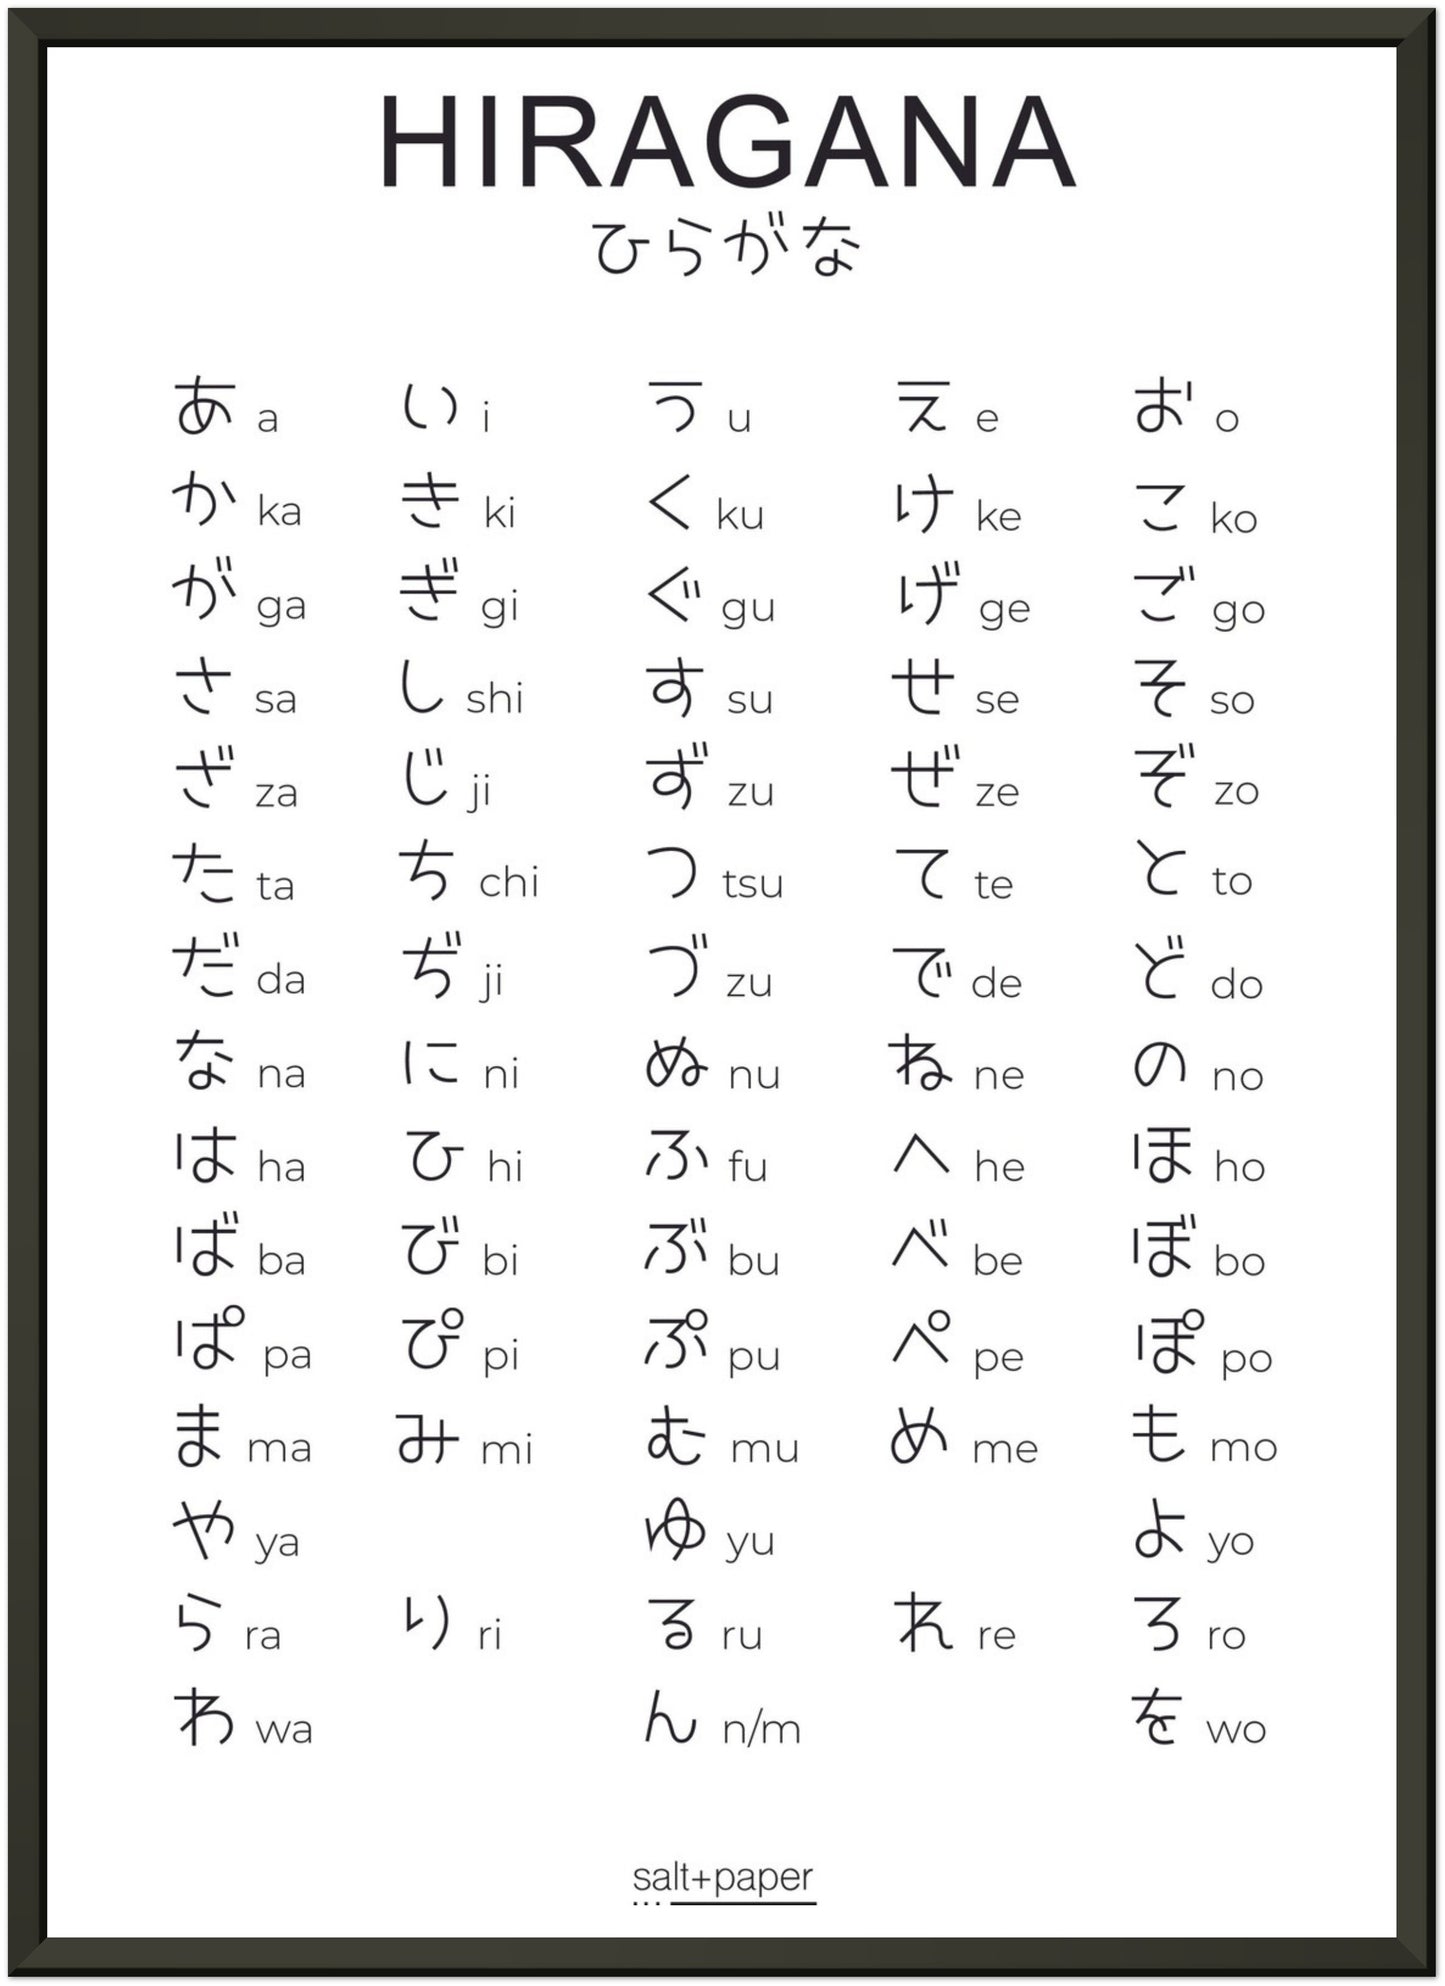 HIRAGANA
ひらがな
あ a い i う u え e お o
か ka き ki く ku け ke こ ko
が ga ぎ gi ぐ gu げ ge ご go
さ sa し shi す su せ se そ so
ざ za じ ji ず zu ぜ ze ぞ zo
た ta ち chi つ tsu て te と to
だ da ぢ ji づ zu で de ど do
な na に ni ぬ nu ね ne の no
は ha ひ hi ふ fu へ he ほ ho
ば ba び bi ぶ bu べ be ぼ bo
ぱ pa ぴ pi ぷ pu ぺ pe ぽ po
ま ma み mi む mu め me も mo
や ya ゆ yu よ yo
ら ra り ri る ru れ re ろ ro
わ wa ん n/m を wo
salt+paper